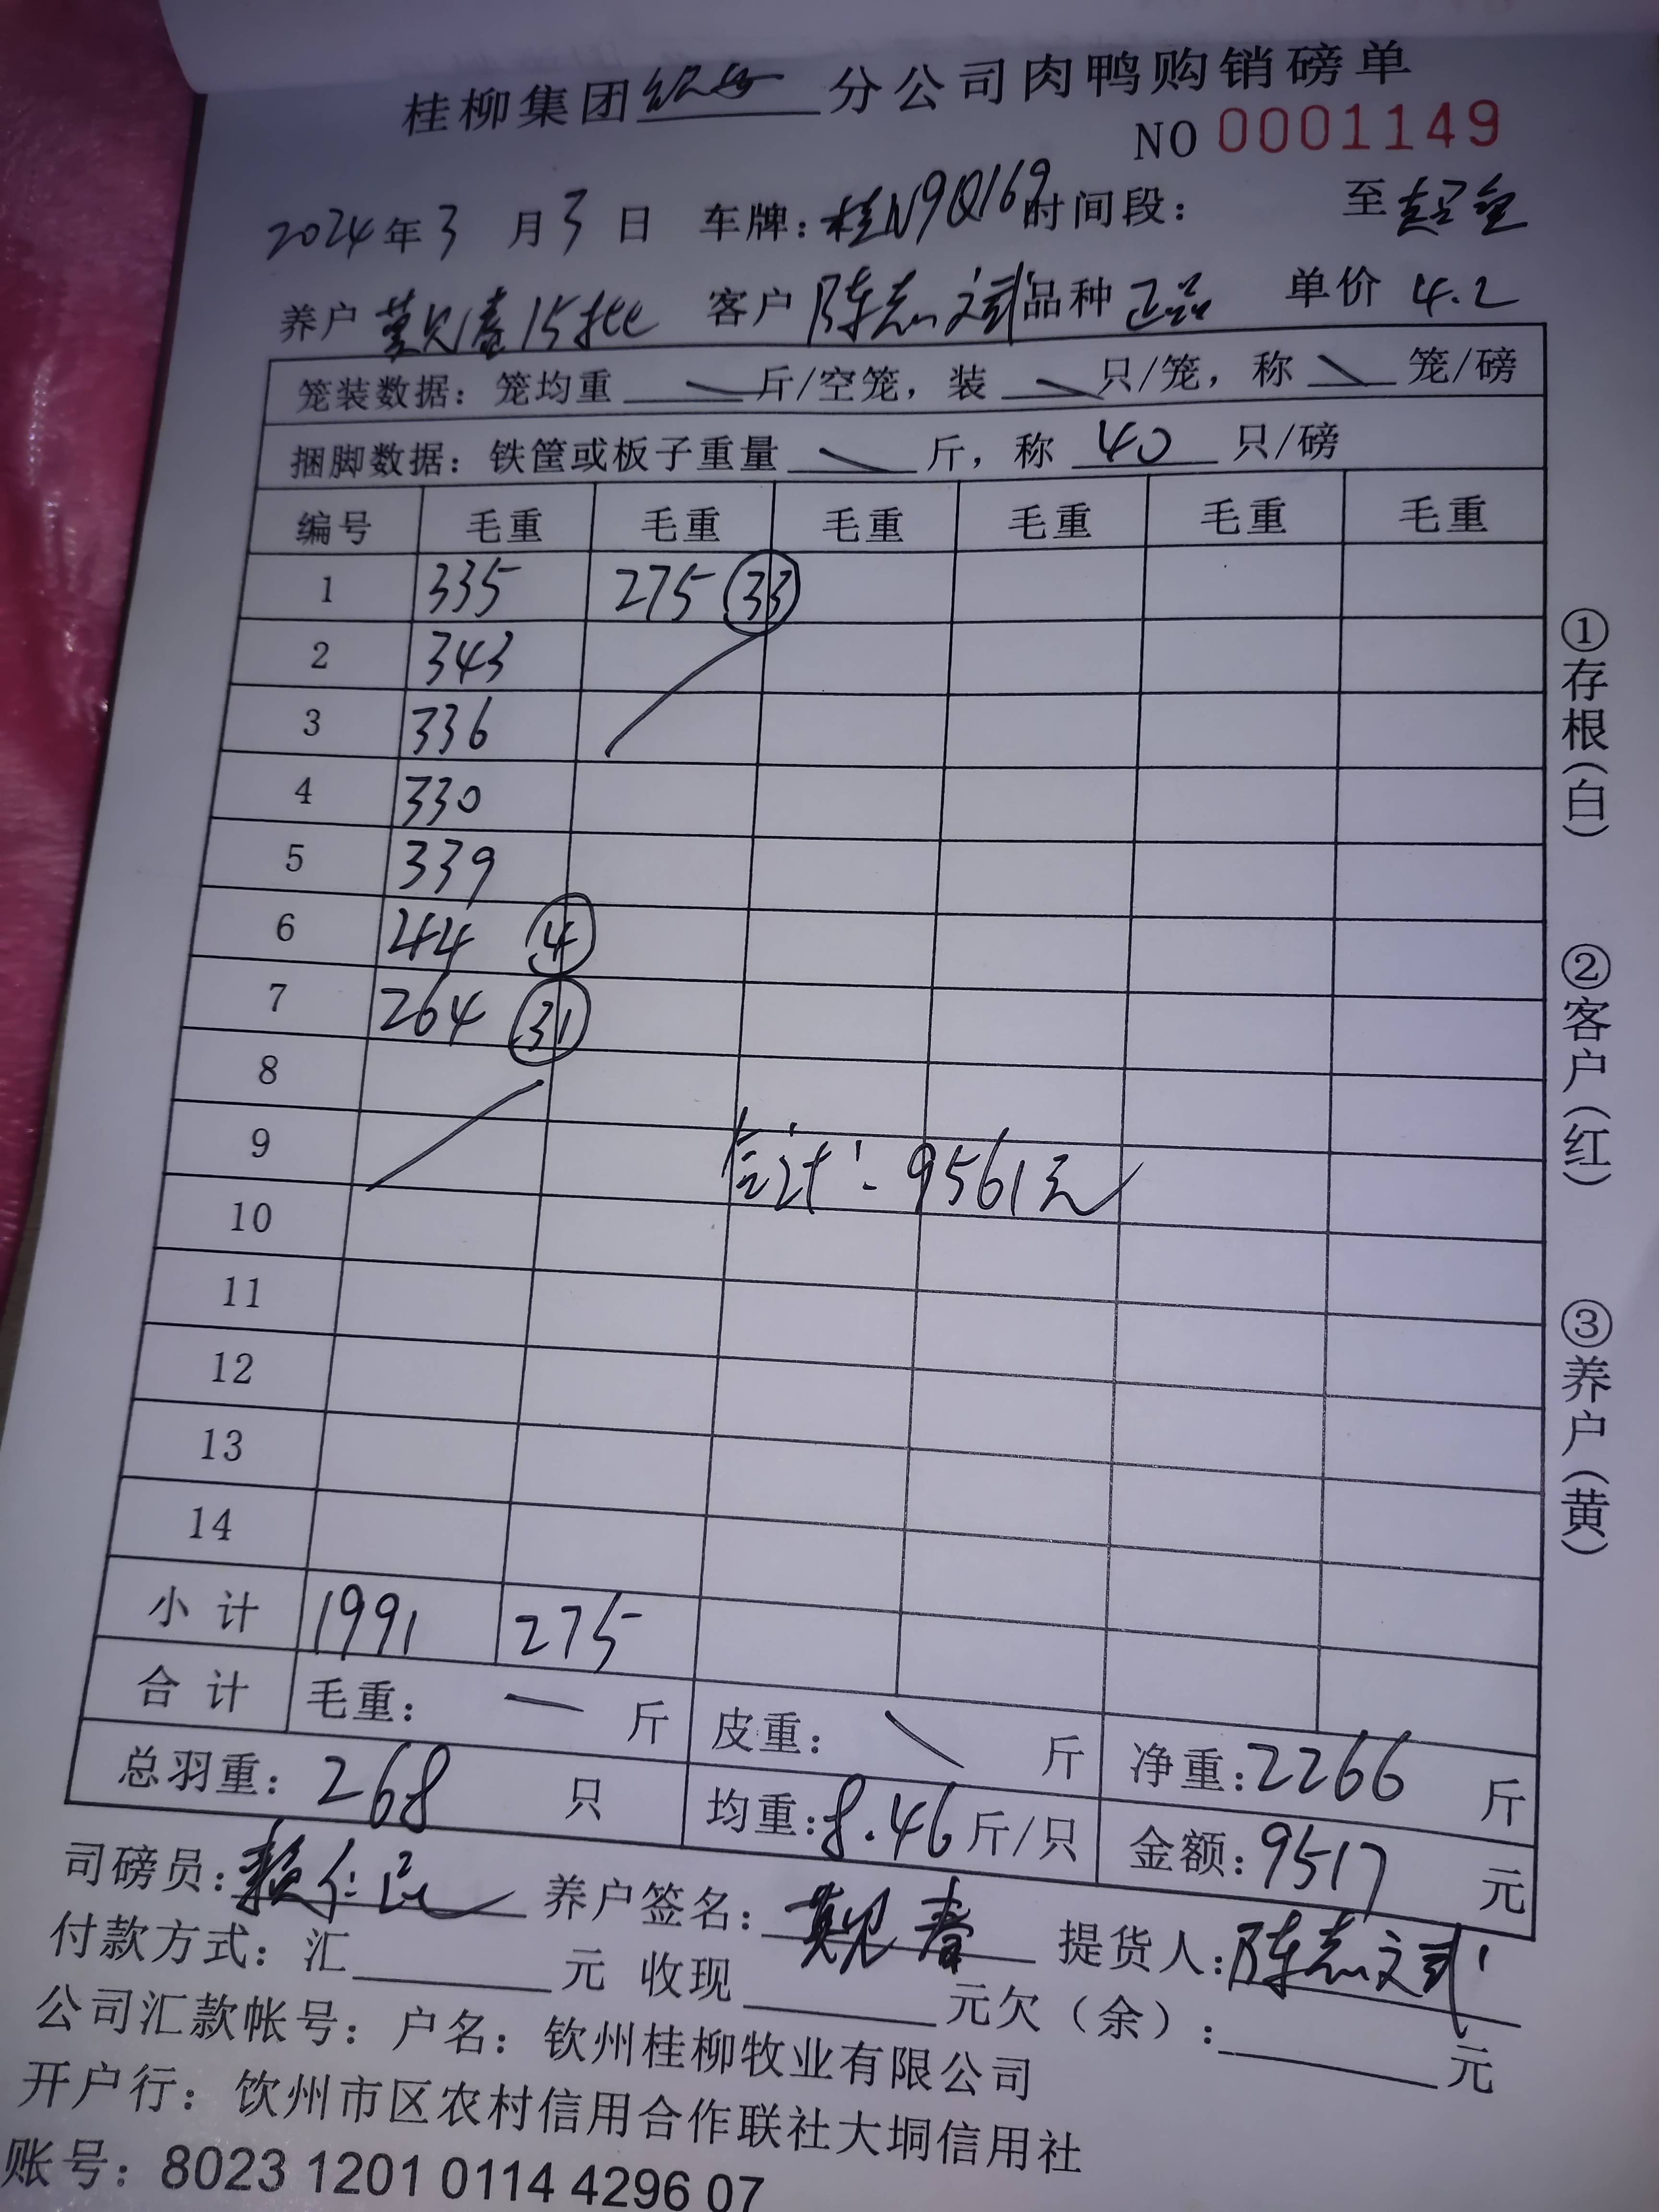 桂柳集团 分公司肉鸭购销磅单
NO 0001149
2024年3月3日 车牌：桂N9Q169 时间段： 至
养户 莫见春15批 客户 陈志斌 品种 正品 单价 4.2
笼装数据：笼均重 斤/空笼，装 只/笼，称 笼/磅
捆脚数据：铁筐或板子重量 斤，称 40 只/磅
编号 毛重 毛重 毛重 毛重 毛重 毛重
1 335 275 33
2 343
3 336
4 330
5 339
6 44 4
7 264 31
8
9
合计：9561元
10
11
12
13
14
小计 1991 275
合计 毛重： 一 斤 皮重： 斤 净重：2266 斤
总羽重：268 只 均重：8.46斤/只 金额：9517 元
司磅员： 养户签名：莫见春 提货人：陈志斌
付款方式：汇 元 收现 元欠（余）： 元
公司汇款帐号：户名：钦州桂柳牧业有限公司
开户行：钦州市区农村信用合作联社大垌信用社
账号：8023 1201 0114 4296 07
①存根（白）
②客户（红）
③养户（黄）